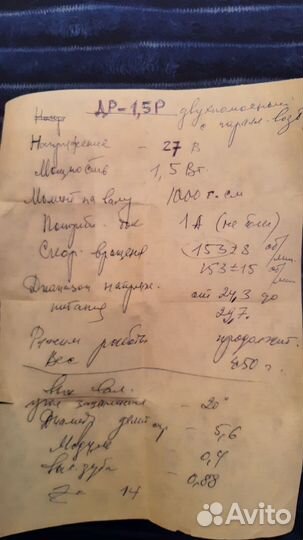 ДР-1,5Р двухполюсный
с паралл. возб
Напряжение - 27 В
Мощность 1,5 Вт.
Момент на валу 1000 г.см
Потребл. ток 1 А (не более)
Скор. вращения 153±8 об/мин
153±15 об/мин
Диапазон напряж. от 24,3 до
питания 29,7.
Режим работы продолжит.
Вес 450 г.
вых вал.
угол зацепления - 20°
Диаметр делит окр - 5,6
Модуль - 0,4
выс. зуба - 0,88
Z = 14
Avito